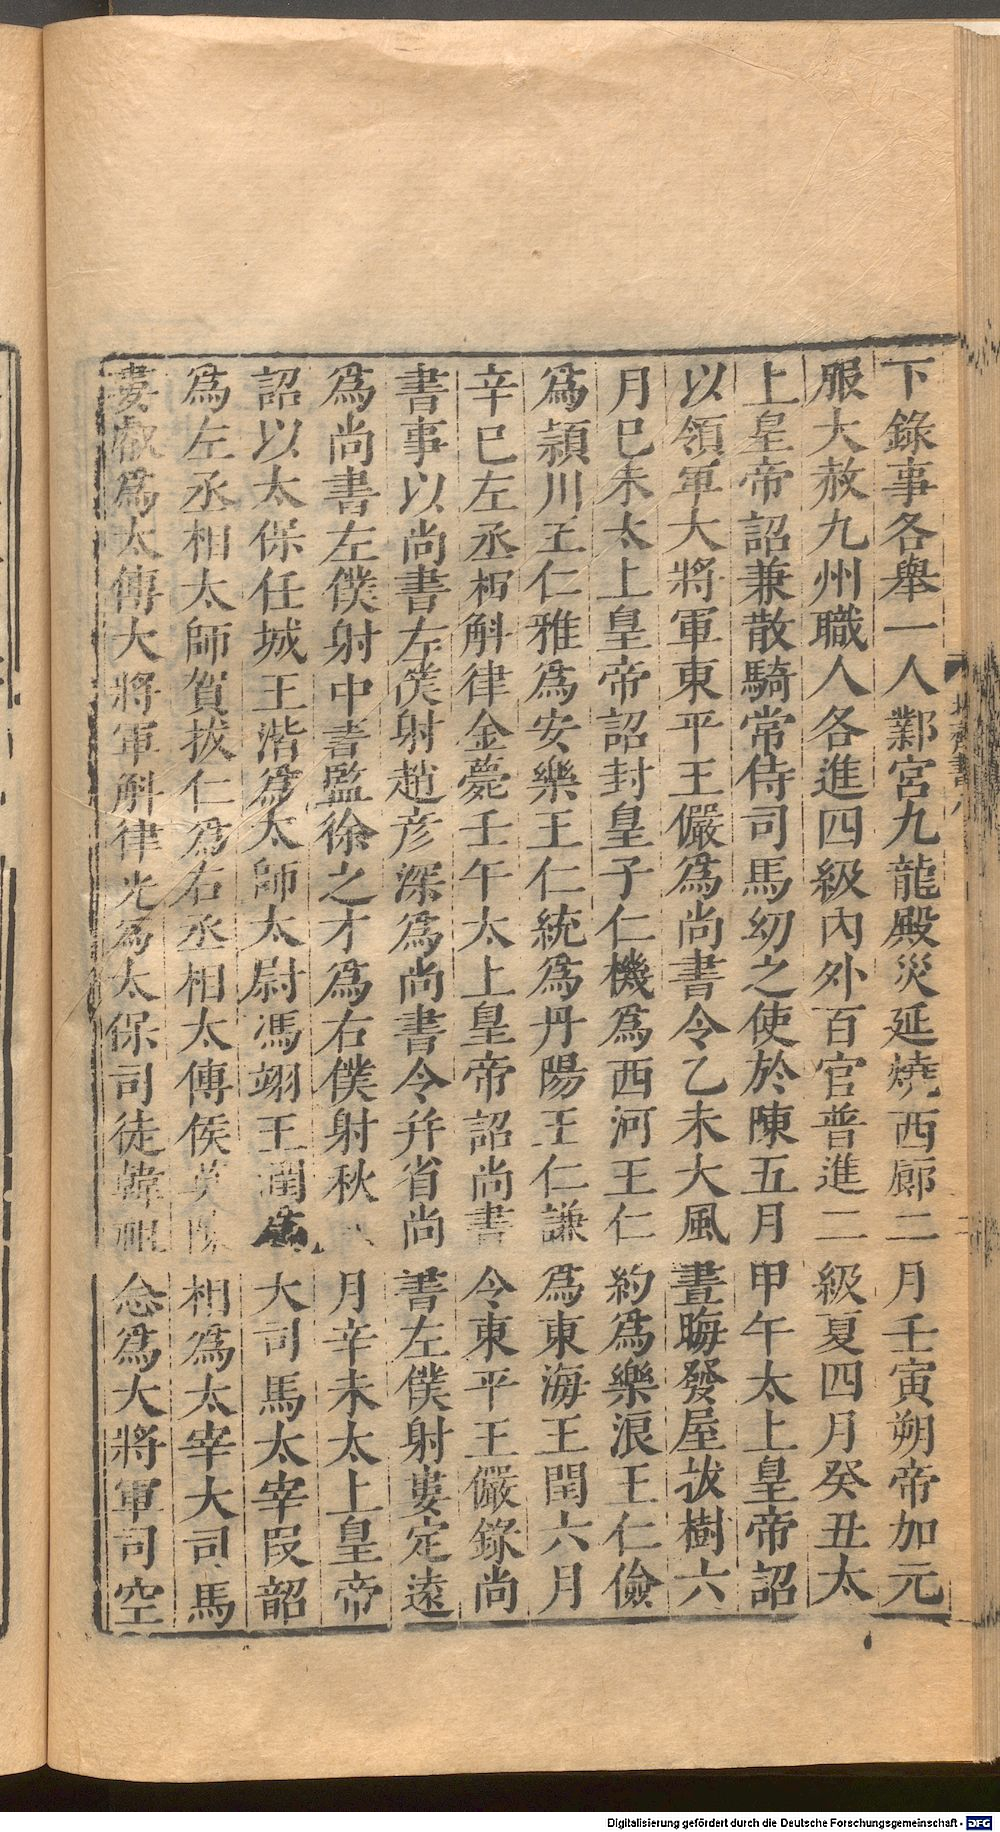 下錄事各舉一人鄴宮九龍殿災延燒西廊二月壬寅朔帝加元
服大赦九州職人各進四級內外百官普進二級夏四月癸丑太
上皇帝詔兼散騎常侍司馬幼之使於陳五月甲午太上皇帝詔
以領軍大將軍東平王儼爲尚書令乙未大風晝晦發屋拔樹六
月巳未太上皇帝詔封皇子仁機爲西河王仁約爲樂浪王仁儉
爲潁川王仁雅爲安樂王仁統爲丹陽王仁謙爲東海王閏六月
辛巳左丞相斛律金薨壬午太上皇帝詔尚書令東平王儼錄尚
書事以尚書左僕射趙彥深爲尚書令幷省尚書左僕射婁定遠
爲尚書左僕射中書監徐之才爲右僕射秋八月辛未太上皇帝
詔以太保任城王湝爲太師太尉馮翊王潤爲大司馬太宰段韶
爲左丞相太師賀拔仁爲右丞相太傅侯莫陳相爲太宰大司馬
婁叡爲太傅大將軍斛律光爲太保司徒韓祖念爲大將軍司空
北齊書八
Digitalisierung gefördert durch die Deutsche Forschungsgemeinschaft - DFG